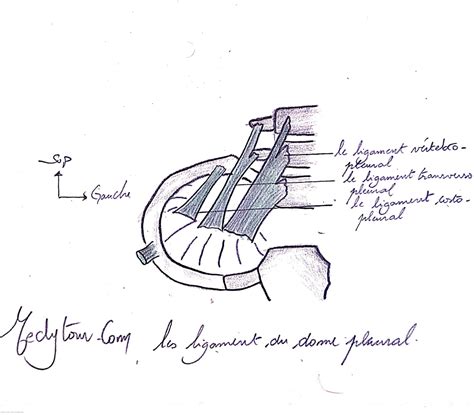 Sup
Gauche
le ligament vértébro-
pleural
le ligament transverso
pleural
le ligament costo-
pleural
Medytour.Com les ligament du dome pleural.